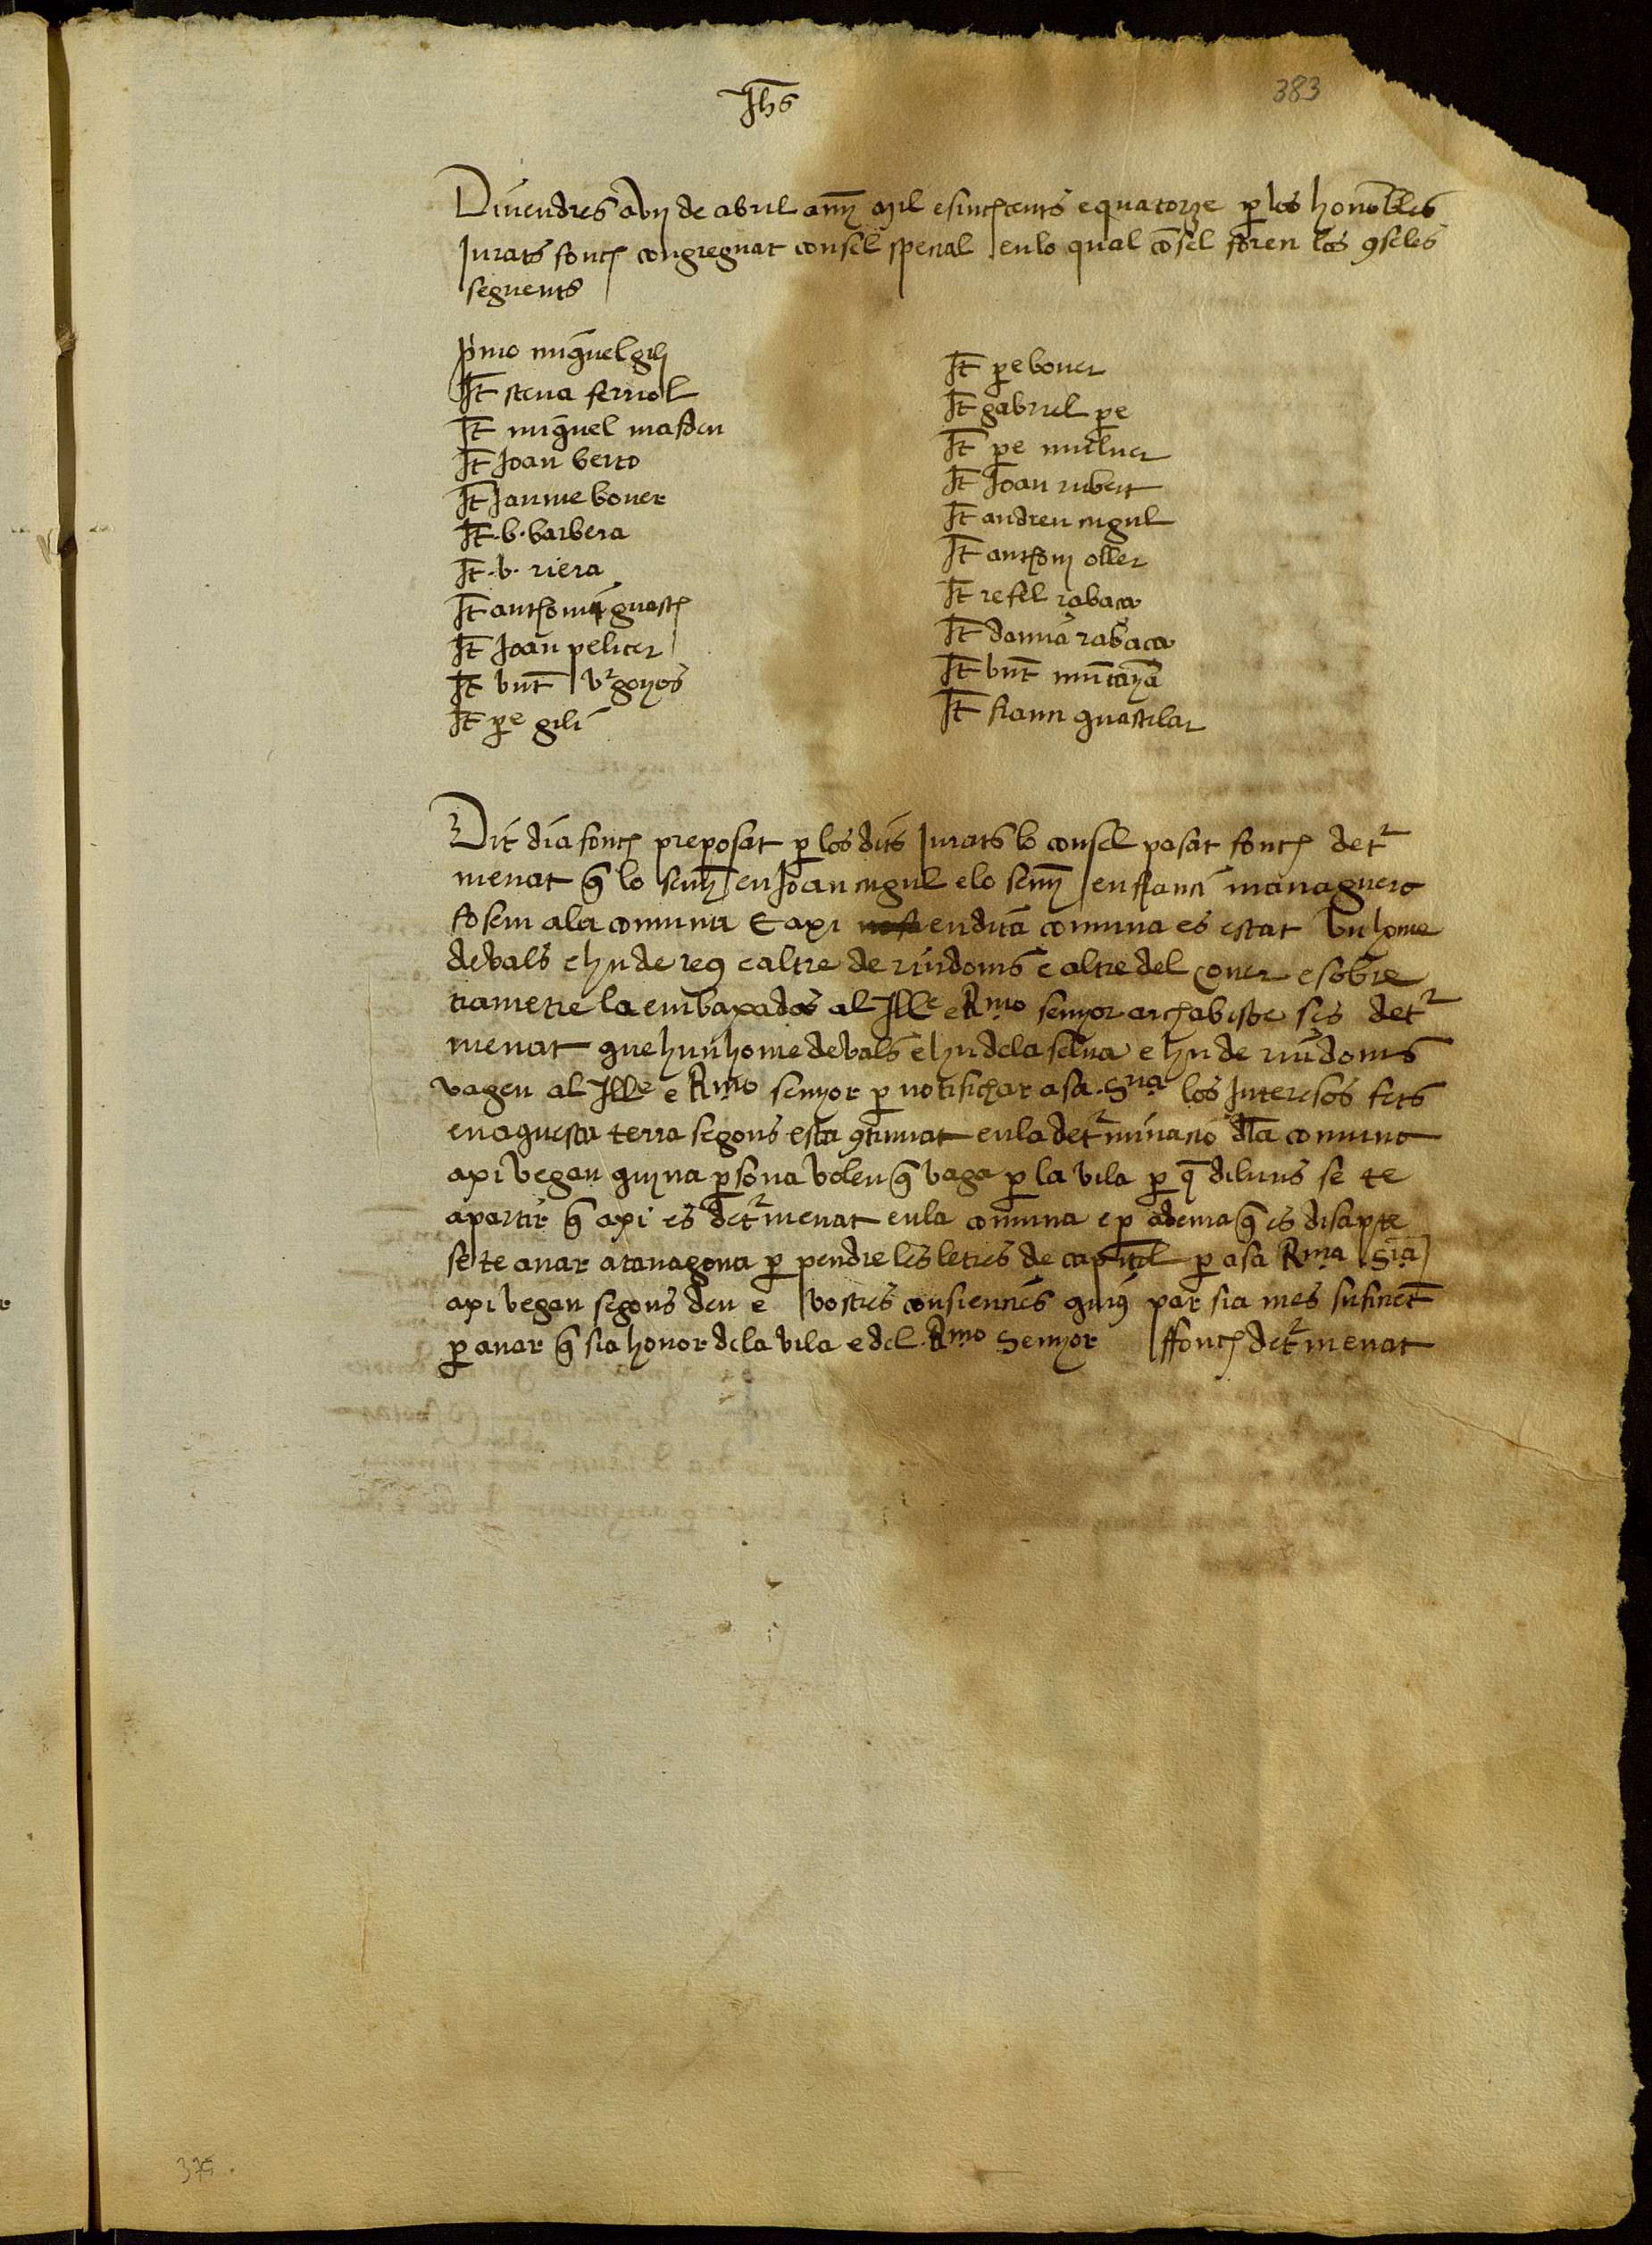 Jhs
383
Divendres a vij de abril any mil e sinchcents e quatorze per los honorables
Jurats fonch congreguat consel spesial en lo qual cosel foren los 9selés
seguents
Primo miquel gili
It steva feriol
It miquel masdeu
It Joan berto
It Jaume bover
It .b. barbera
It .b. riera
It anthoni guasch
It Joan peliser
It bnt
It pe gili
It pe bover
It gabriel pe
It pe
It Joan rubert
It andreu cugul
It anthoni oller
It rafel rabaca
It damia rabaca
It bnt muntaya
It franci
Dit dia fonch preposat per los dits Jurats lo consel pasat fonch deter
menat que lo seny en Joan cugul e lo seny en franci
fosem a la comuna E axi en dita comuna es estat bu home
de vals e hu de reus e altre de riudoms e altre del e sobre
trametre la embaxados al Ille e Rmo senyor archabisbe ses deter
menat que hun home de vals e hu de la selva e hu de riudoms
vagen al Ille e Rmo senyor per notifichar a sa Sria los Interesos fets
en aquesta terra segons esta 9tinuat en la determinacio dla comuna
axi vegan quyna persona volen que vaga per la vila per q diluns se te
a partir que axi es determenat en la comuna e per adema que es disapte
se te anar a taragona per pendre les letres de capitol per a sa Rma Sia
axi vegan segons deu e vostres consiencies quius par sia mes sufisient
per anar que sia honor de la vila e del Rmo Senyor ffonch determenat
375